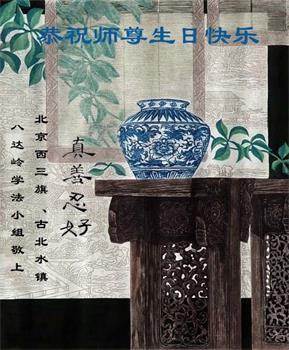 恭祝师尊生日快乐
真善忍好
北京西三旗、古北水镇、
八达岭学法小组敬上